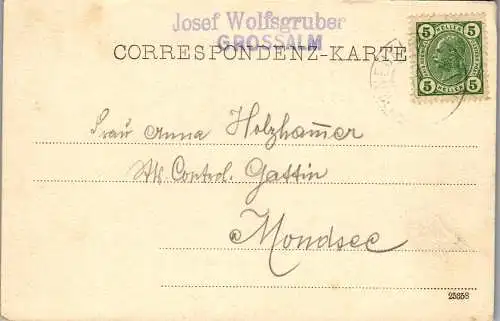 Josef Wolfsgruber
GROSSALM
CORRESPONDENZ-KARTE
5 HELLER 5
5 HELLER 5
Frau Anna Holzham̅er
Control. Gattin
Mondsee
25658